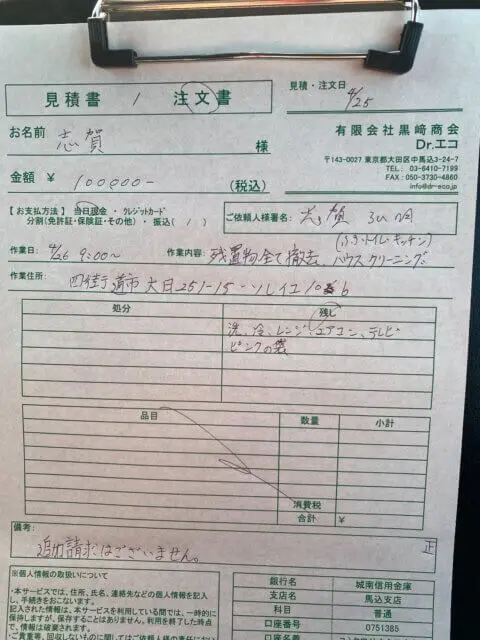 見積・注文日
4/25
見積書 / 注文書
お名前 志賀 様
有限会社黒﨑商会
Dr.エコ
〒143-0027 東京都大田区中馬込3-24-7
TEL: 03-6410-7199
FAX: 050-3730-4860
info@dr-eco.jp
金額 ¥ 100000- (税込)
【お支払方法】当日現金・クレジットカード
分割(免許証・保険証・その他)・振込( / )
ご依頼人様署名: 志賀
(ふろ・トイレ・キッチン)
作業日: 4/26 9:00〜 作業内容: 残置物全て撤去、ハウスクリーニング
作業住所: 四街道市大日251-15
処分 残し
洗、冷、レンジ、エアコン、テレビ
ピンクの袋
品目 数量 小計
消費税
合計 ¥
備考:
追加請求はございません。
正
※個人情報の取扱いについて
・本サービスでは、住所、氏名、連絡先などの個人情報を記入
し、手続きをおこないます。
記入された情報は、本サービスを利用している間では、一時的に
保持しますが、保存することはありません。利用を終了した時点
で、情報は破棄されます。
銀行名 城南信用金庫
支店名 馬込支店
科目 普通
口座番号 0751385
口座名義